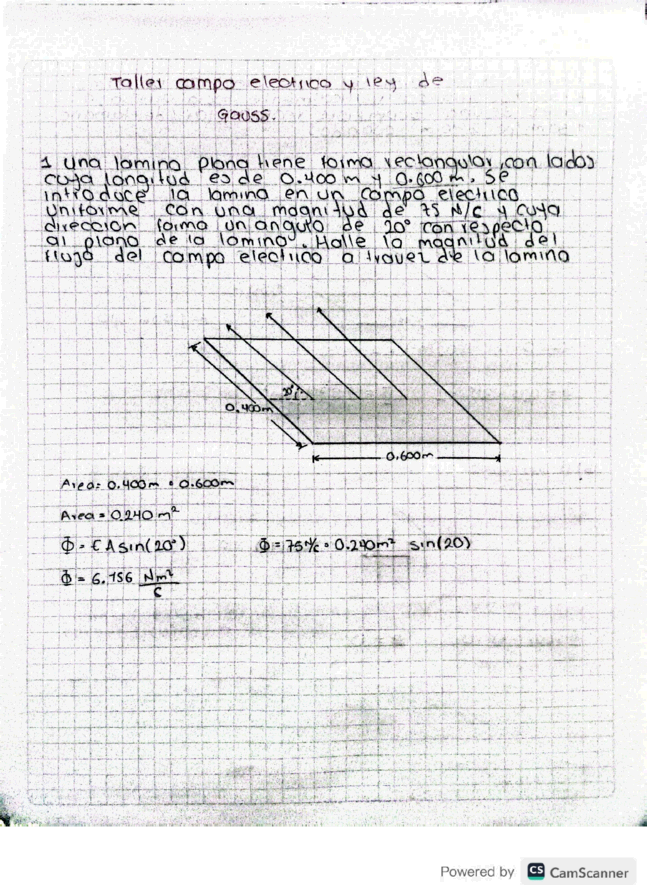 Taller campo electrico y ley de
Gauss.
1 una lamina plana tiene forma rectangular, con lados
cuya longitud es de 0.400 m y 0.600 m. Se
introduce la lamina en un campo electrico
uniforme con una magnitud de 75 N/C y cuya
direccion forma un angulo de 20° con respecto
al plano de la lamina. Halle la magnitud del
flujo del campo electrico a travez de la lamina
20°
0.400m
0.600m
Area: 0.400m • 0.600m
Area = 0.240 m²
Φ = E A sin(20°) Φ = 75 N/c • 0.240m² sin(20)
Φ = 6.156 Nm²/C
Powered by CS CamScanner